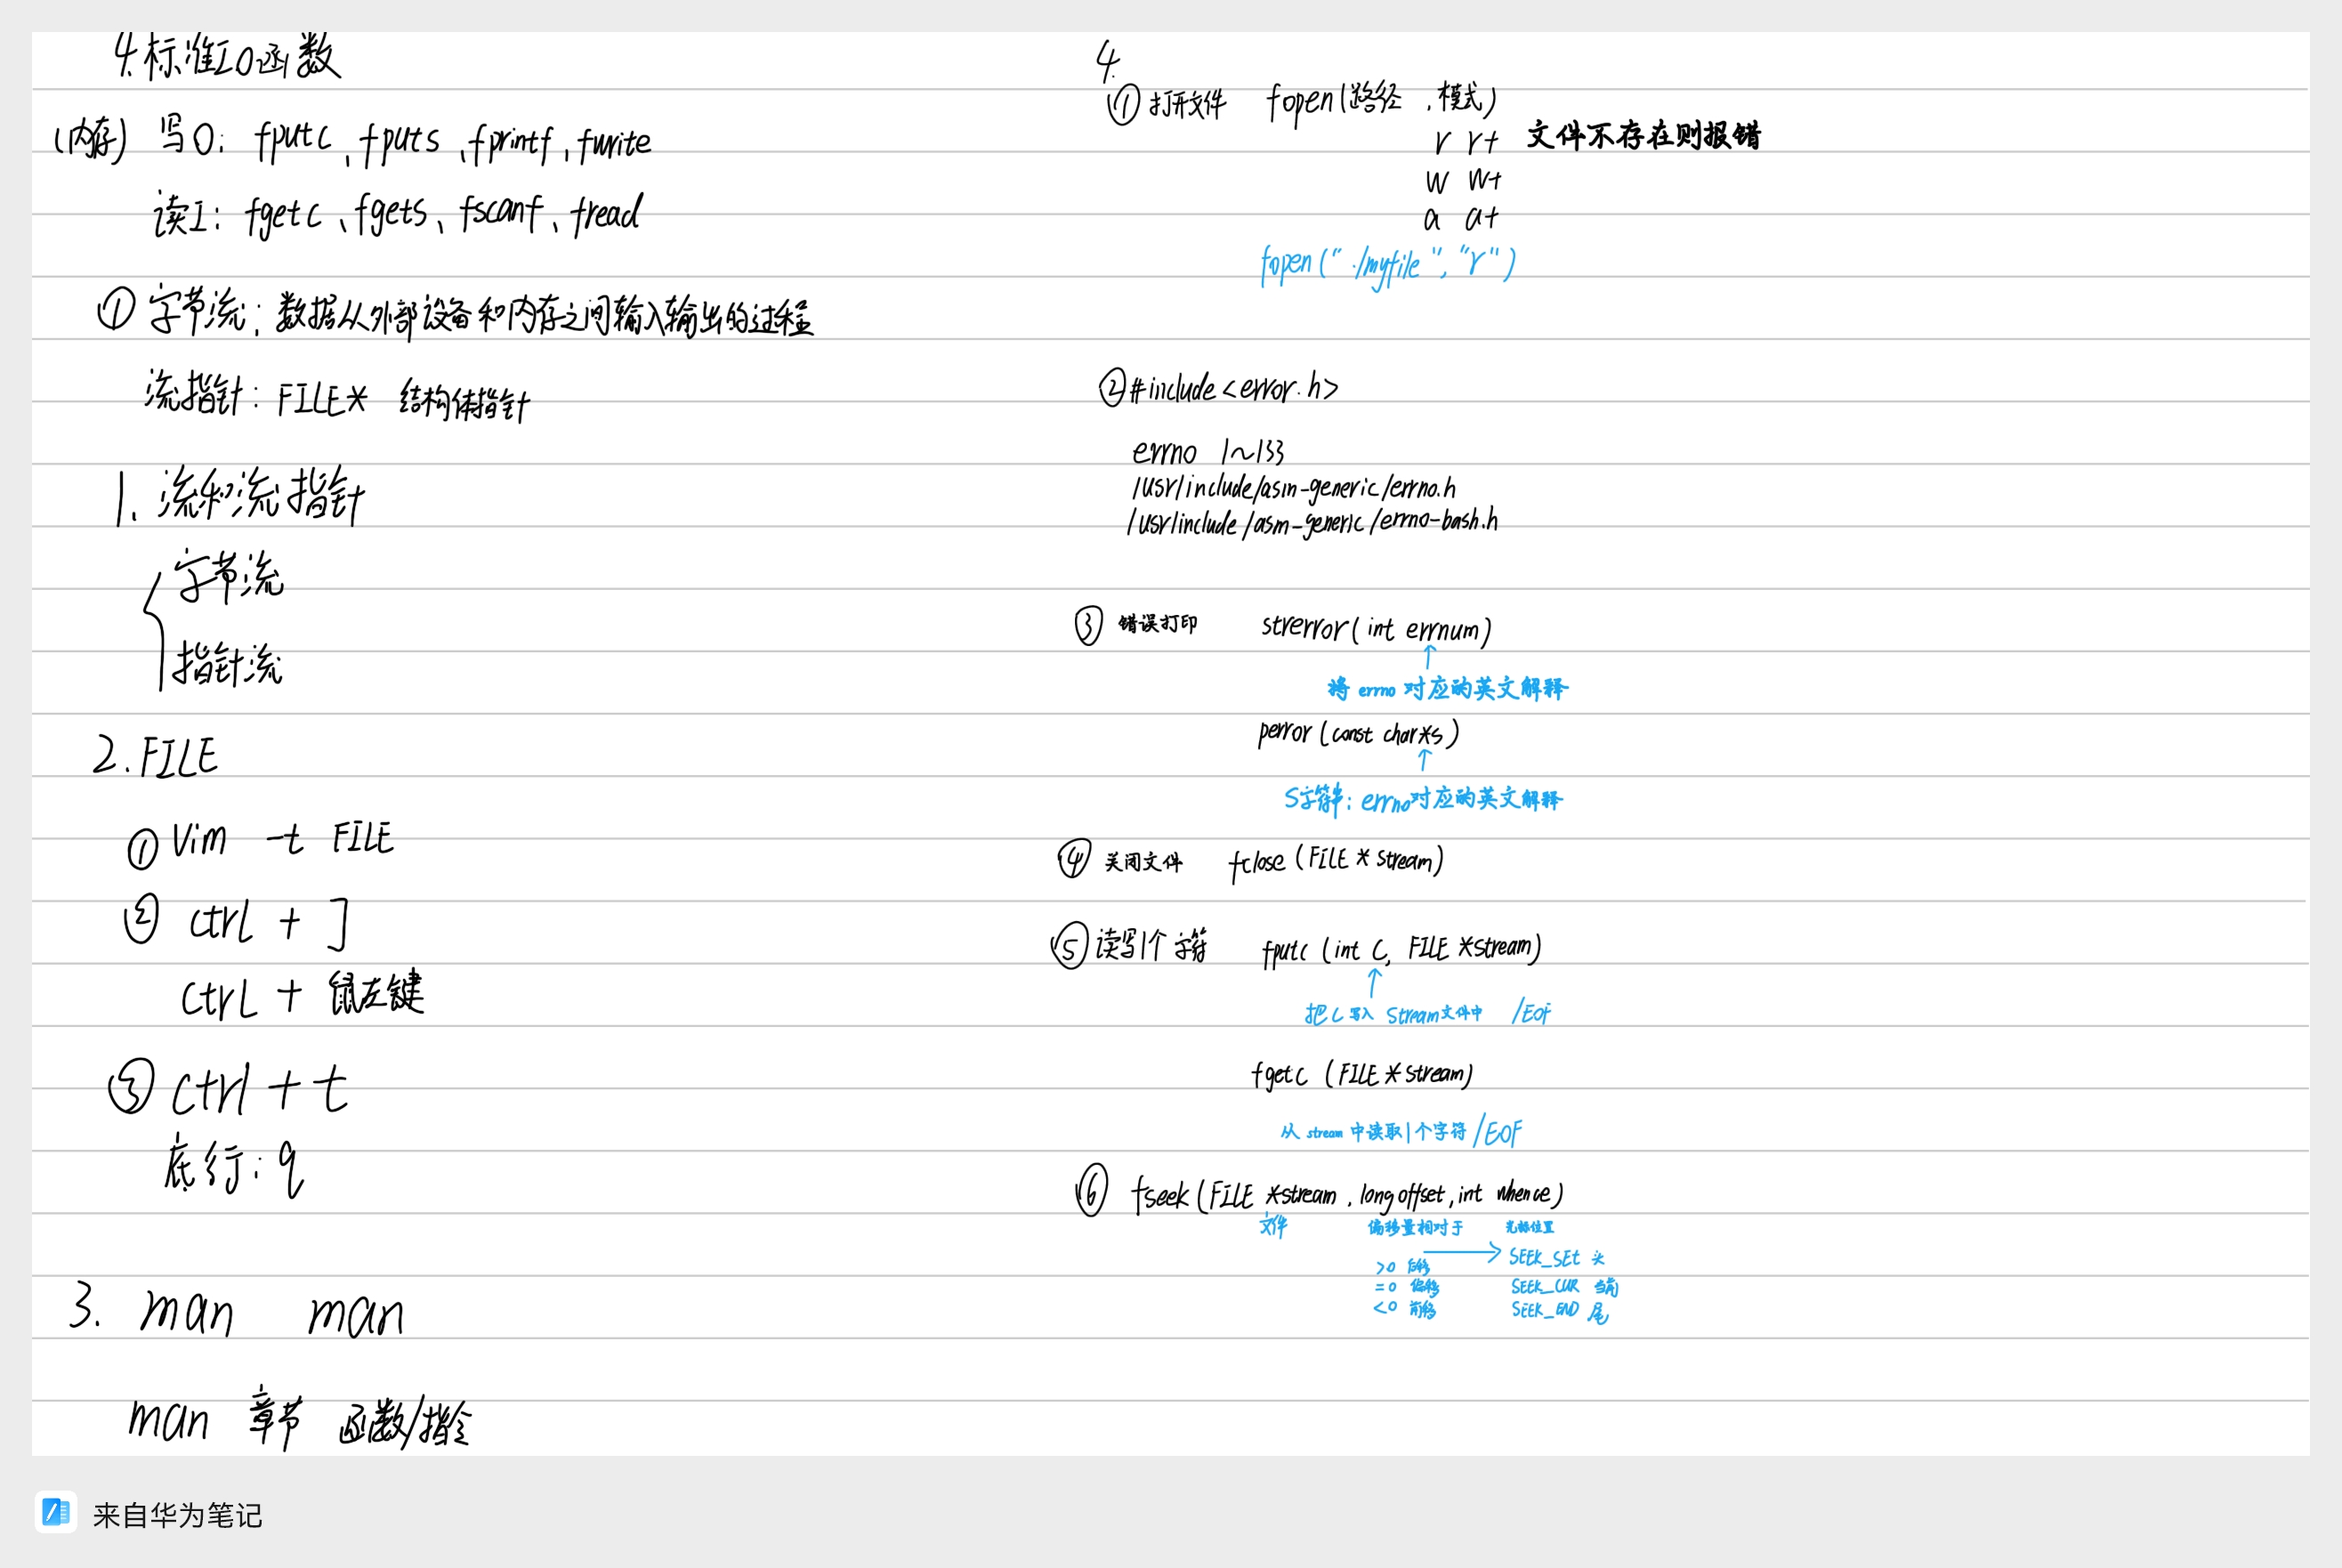 4.标准IO函数
(内存) 写O: fputc、fputs、fprintf、fwrite
读I: fgetc、fgets、fscanf、fread
① 字节流: 数据从外部设备和内存之间输入输出的过程
流指针: FILE* 结构体指针
1. 流和流指针
字节流
指针流
2.FILE
① Vim -t FILE
② ctrl + ]
ctrl + 鼠左键
③ ctrl + t
底行: q
3. man man
man 章节 函数/指令
4.
① 打开文件 fopen(路径,模式)
r r+ 文件不存在则报错
w w+
a a+
fopen("./myfile","r")
② #include<error.h>
errno 1~133
/usr/include/asm-generic/errno.h
/usr/include/asm-generic/errno-bash.h
③ 错误打印 strerror(int errnum)
↑
将errno对应的英文解释
perror(const char*s)
↑
S字符串: errno对应的英文解释
④ 关闭文件 fclose(FILE *stream)
⑤ 读写1个字符 fputc (int C, FILE *stream)
↑
把C写入Stream文件中 /EOF
fgetc (FILE *stream)
从stream中读取1个字符/EOF
⑥ fseek(FILE *stream,long offset,int whence)
文件 偏移量相对于 光标位置
>0 后移 → SEEK_SEt 头
=0 偏移 SEEK_CUR 当前
<0 前移 SEEK_END 尾
来自华为笔记